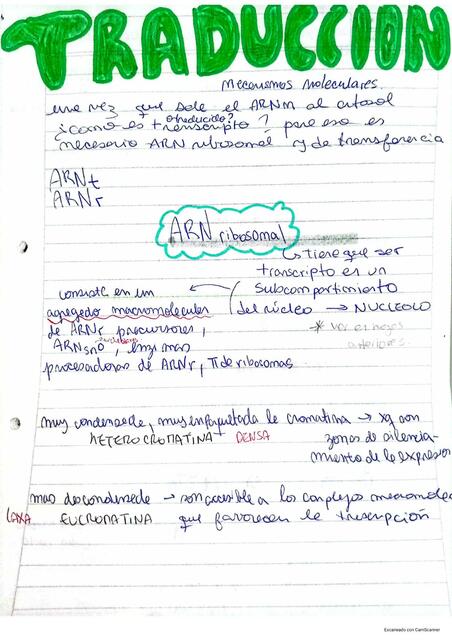 TRADUCCION
Mecanismos moleculares
una vez que sale el ARNm al citosol
o traducido?
¿como es transcripto? para eso es
necesario ARN ribosomal y de transferencia
ARNt
ARNr
ARN ribosomal
↳ Tiene que ser
transcripto es un
subcompartimiento
del núcleo → NUCLEOLO
* ver en hojas
anteriores.
consiste en un
agregado macromolecular
de ARNr precursores,
ARNsno, enzimas
procesadoras de ARNr, π de ribosomas
muy condensada, muy empaquetada la cromatina → xq son
HETEROCROMATINA DENSA zonas de silencia-
miento de la expresion
mas descondensada → son accesible a los complejos macromolec
LAXA EUCROMATINA que favorecen la transcripción
Escaneado con CamScanner